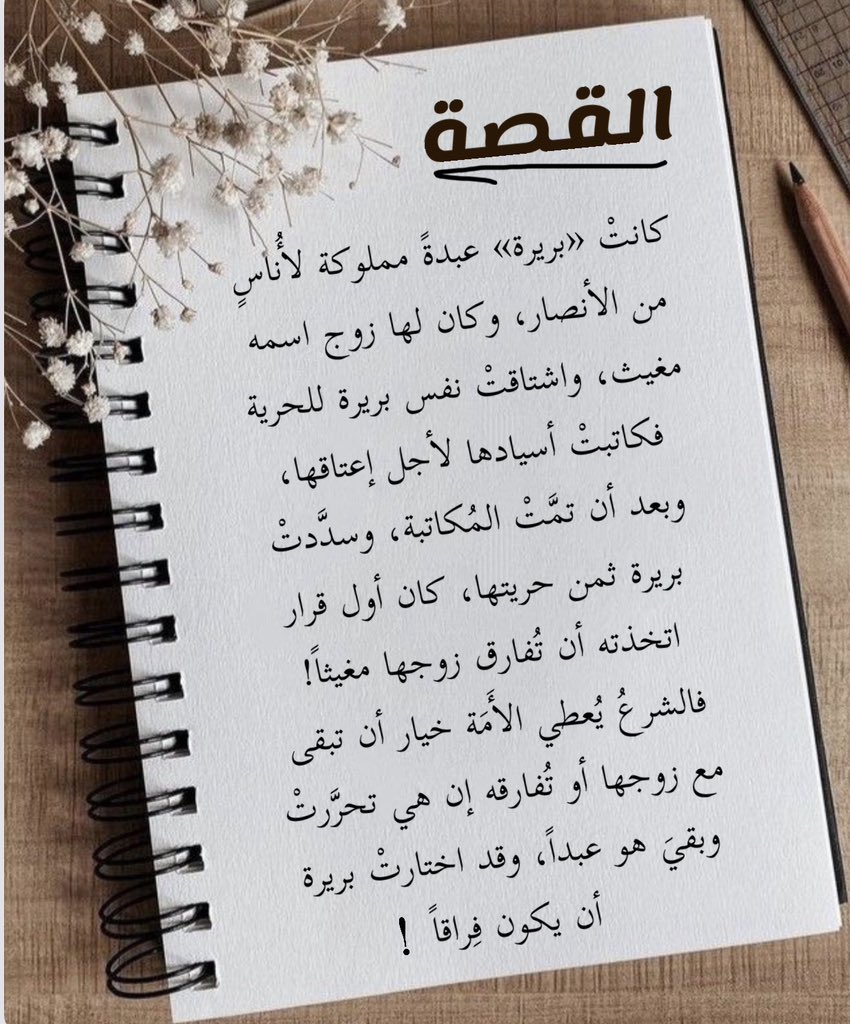 القصة
كانتْ «بريرة» عبدةً مملوكة لأُناسٍ
من الأنصار، وكان لها زوج اسمه
مغيث، واشتاقتْ نفس بريرة للحرية
فكاتبتْ أسيادها لأجل إعتاقها،
وبعد أن تمَّتْ المُكاتبة، وسدَّدتْ
بريرة ثمن حريتها، كان أول قرار
اتخذته أن تُفارق زوجها مغيثاً!
فالشرعُ يُعطي الأَمَة خيار أن تبقى
مع زوجها أو تُفارقه إن هي تحرَّرتْ
وبقيَ هو عبداً، وقد اختارتْ بريرة
أن يكون فِراقاً !